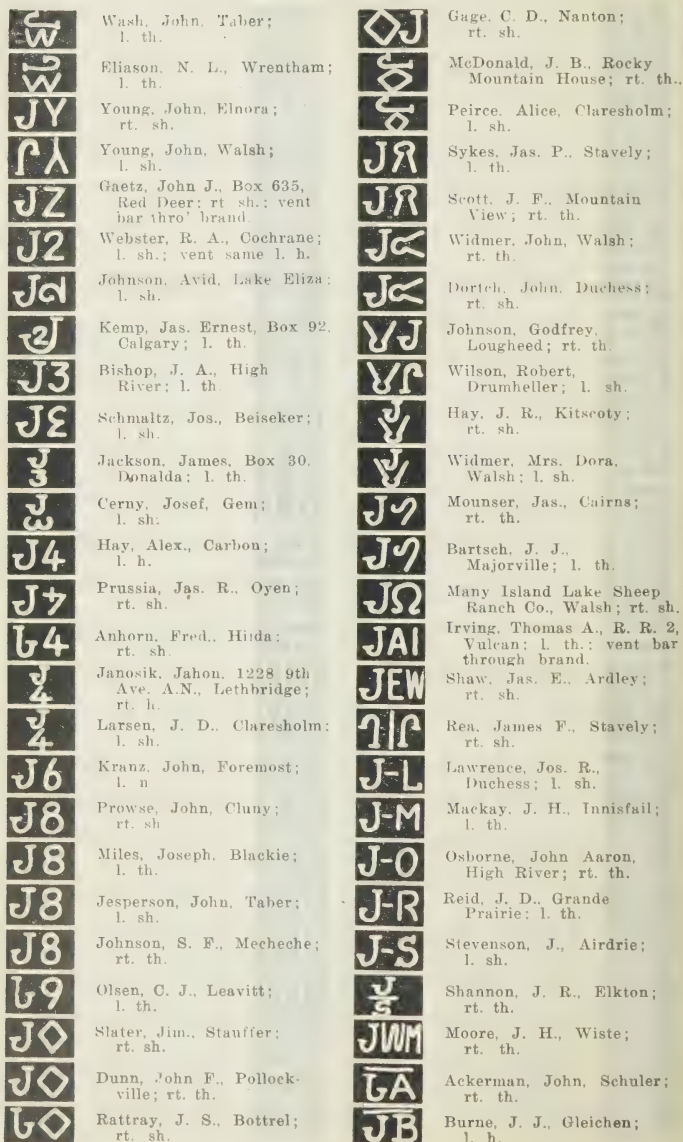 Wash, John, Taber;
l. th.
Eliason, N. L., Wrentham;
l. th.
JY
Young, John, Elnora;
rt. sh.
Young, John, Walsh;
l. sh.
JZ
Gaetz, John J., Box 635,
Red Deer; rt sh.; vent
bar thro' brand.
J2
Webster, R. A., Cochrane;
l. sh.; vent same l. h.
Johnson, Avid, Lake Eliza;
l. sh.
2J
Kemp, Jas. Ernest, Box 92,
Calgary; l. th.
J3
Bishop, J. A., High
River; l. th.
Schmaltz, Jos., Beiseker;
l. sh.
J
3
Jackson, James, Box 30,
Donalda; l. th.
Cerny, Josef, Gem;
l. sh.
J4
Hay, Alex., Carbon;
l. h.
Prussia, Jas. R., Oyen;
rt. sh.
Anhorn, Fred., Hilda;
rt. sh.
J
4
Janosik, Jahon, 1228 9th
Ave. A.N., Lethbridge;
rt. h.
J
4
Larsen, J. D., Claresholm;
l. sh.
J6
Kranz, John, Foremost;
l. n
J8
Prowse, John, Cluny;
rt. sh
J8
Miles, Joseph, Blackie;
l. th.
J8
Jesperson, John, Taber;
l. sh.
J8
Johnson, S. F., Mecheche;
rt. th.
Olsen, C. J., Leavitt;
l. th.
J◇
Slater, Jim., Stauffer;
rt. sh.
J◇
Dunn, John F., Pollock-
ville; rt. th.
Rattray, J. S., Bottrel;
rt. sh.
◇J
Gage, C. D., Nanton;
rt. sh.
McDonald, J. B., Rocky
Mountain House; rt. th..
Peirce, Alice, Claresholm;
l. sh.
Sykes, Jas. P., Stavely;
l. th.
Scott, J. F., Mountain
View; rt. th.
Widmer, John, Walsh;
rt. th.
Dortch, John, Duchess;
rt. sh.
Johnson, Godfrey,
Lougheed; rt. th.
Wilson, Robert,
Drumheller; l. sh.
Hay, J. R., Kitscoty;
rt. sh.
Widmer, Mrs. Dora,
Walsh; l. sh.
Mounser, Jas., Cairns;
rt. th.
Bartsch, J. J.,
Majorville; l. th.
JΩ
Many Island Lake Sheep
Ranch Co., Walsh; rt. sh.
JAI
Irving, Thomas A., R. R. 2,
Vulcan; l. th.; vent bar
through brand.
JEW
Shaw, Jas. E., Ardley;
rt. sh.
Rea, James F., Stavely;
rt. sh.
J-L
Lawrence, Jos. R.,
Duchess; l. sh.
J-M
Mackay, J. H., Innisfail;
l. th.
J-O
Osborne, John Aaron,
High River; rt. th.
J-R
Reid, J. D., Grande
Prairie; l. th.
J-S
Stevenson, J., Airdrie;
l. sh.
Shannon, J. R., Elkton;
rt. th.
JWM
Moore, J. H., Wiste;
rt. th.
Ackerman, John, Schuler;
rt. th.
JB
Burne, J. J., Gleichen;
l. h.